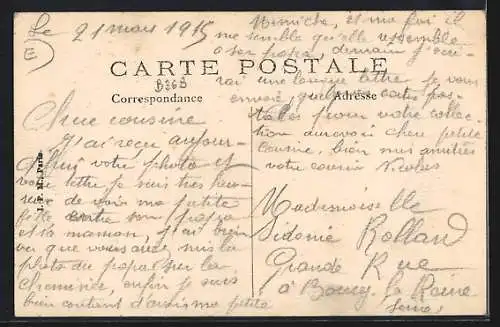 Le 21 mars 1915
E
B368
CARTE POSTALE
Correspondance
Adresse
J. P. M. Paris
Chere cousine
J'ai reçu aujour-
votre photo et
votre lettre je suis tres heu-
de voir ma petite
son papa
et sa maman, j'ai bien
vu que vous avez mis la
photo du papa sur la
cheminée, enfin je suis
bien content d'avoir ma petite
et ma foi il
me semble qu'elle ressemble
a son papa, demain j'ecri-
rai une longue lettre je vous
envoie quelques cartes pos-
tales pour votre collec-
tion au revoir chere petite
cousine, bien mes amitiés
votre cousin Nicolas
Mademoiselle
Sidonie Rolland
Grande Rue
a Bourg la Reine
Seine